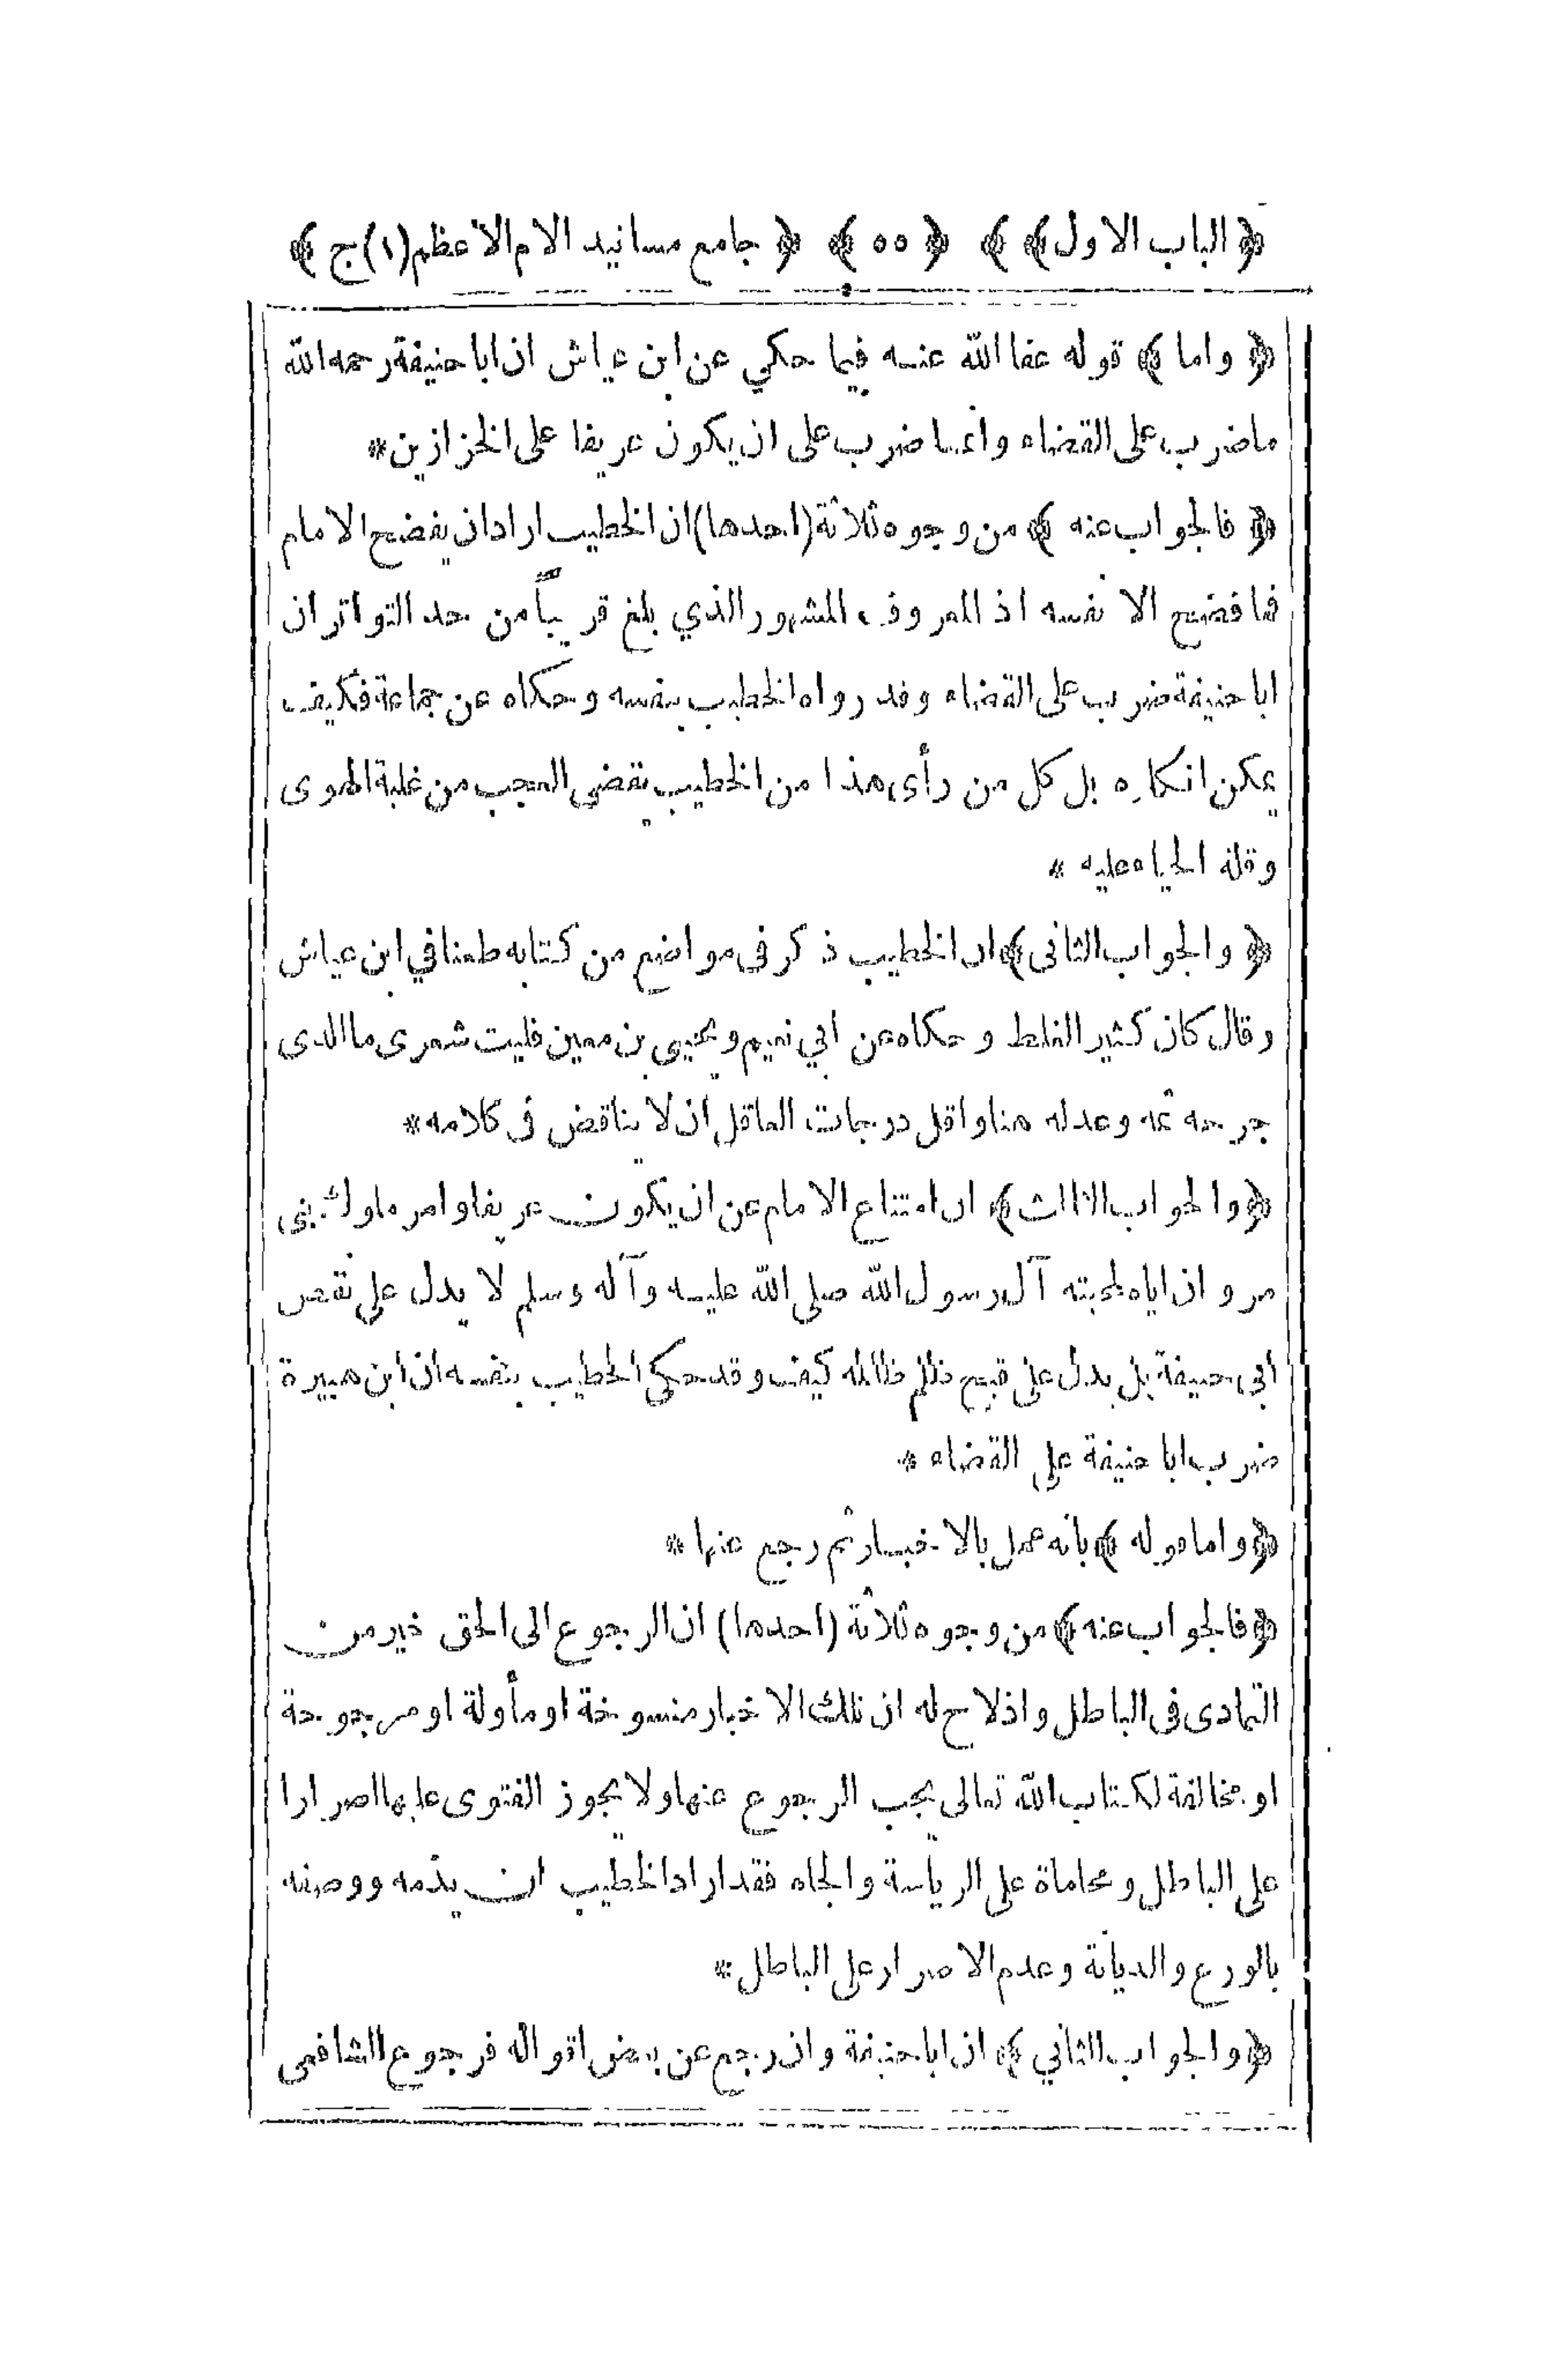 ﴿ الباب الاول ﴾ ﴾ ﴿ ٥٥ ﴾ ﴿ جامع مسانيد الامام الاعظم (١) ج ﴾
﴿ واما ﴾ قوله عفا الله عنه فيما حكي عن ابن عياش ان ابا حنيفة رحمه الله
ماضرب على القضاء وانما ضرب على ان يكون عريفا على الخزازين *
﴿ فالجواب عنه ﴾ من وجوه ثلاثة (احدها) ان الخطيب اراد ان يفضح الامام
فما فضح الا نفسه اذ المعروف المشهور الذي بلغ قريباً من حد التواتر ان
ابا حنيفة ضرب على القضاء وقد رواه الخطيب بنفسه وحكاه عن جماعة فكيف
يمكن انكاره بل كل من رأى هذا من الخطيب يقضي العجب من غلبة الهوى
وقلة الحياء عليه *
﴿ والجواب الثانى ﴾ ان الخطيب ذكر فى مواضع من كتابه طعنا في ابن عياش
وقال كان كثير الغلط وحكاه عن ابي نعيم ويحيى بن معين فليت شعرى ما الذى
جرحه ثمه وعدله هنا واقل درجات العاقل ان لا يناقض فى كلامه *
﴿ والجواب الثالث ﴾ ان امتناع الامام عن ان يكون عريفا وامر ملوك بنى
مروان اياه لمحبته آل رسول الله صلى الله عليه وآله وسلم لا يدل على نقص
ابى حنيفة بل يدل على قبح ظلم ظالمه كيف وقد حكى الخطيب بنفسه ان ابن هبيرة
ضرب ابا حنيفة على القضاء *
﴿ واما قوله ﴾ بانه عمل بالاخبار ثم رجع عنها *
﴿ فالجواب عنه ﴾ من وجوه ثلاثة (احدها) ان الرجوع الى الحق خير من
التمادى فى الباطل واذلاح له ان تلك الاخبار منسوخة او مأولة او مرجوحة
او مخالفة لكتاب الله تعالى يجب الرجوع عنها ولا يجوز الفتوى عليها اصرارا
على الباطل ومحاماة على الرياسة والجاه فقد اراد الخطيب ان يذمه ووصفه
بالورع والديانة وعدم الاصرار على الباطل *
﴿ والجواب الثاني ﴾ ان ابا حنيفة وان رجع عن بعض اقواله فرجوع الشافعى